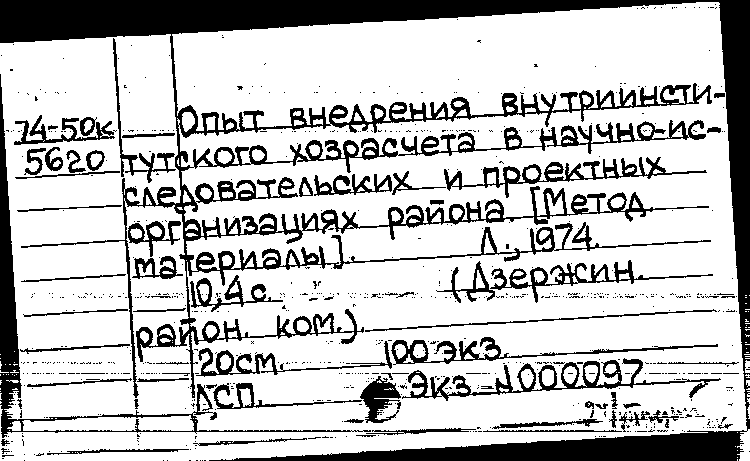 74-50к Опыт внедрения внутриинсти-
5620 тутского хозрасчета в научно-ис-
следовательских и проектных
организациях района. [Метод.
материалы]. Л., 1974.
10,4 с. (Дзержин.
район. ком.).
20см. 100 экз.
ЛСП. Экз. №000097.